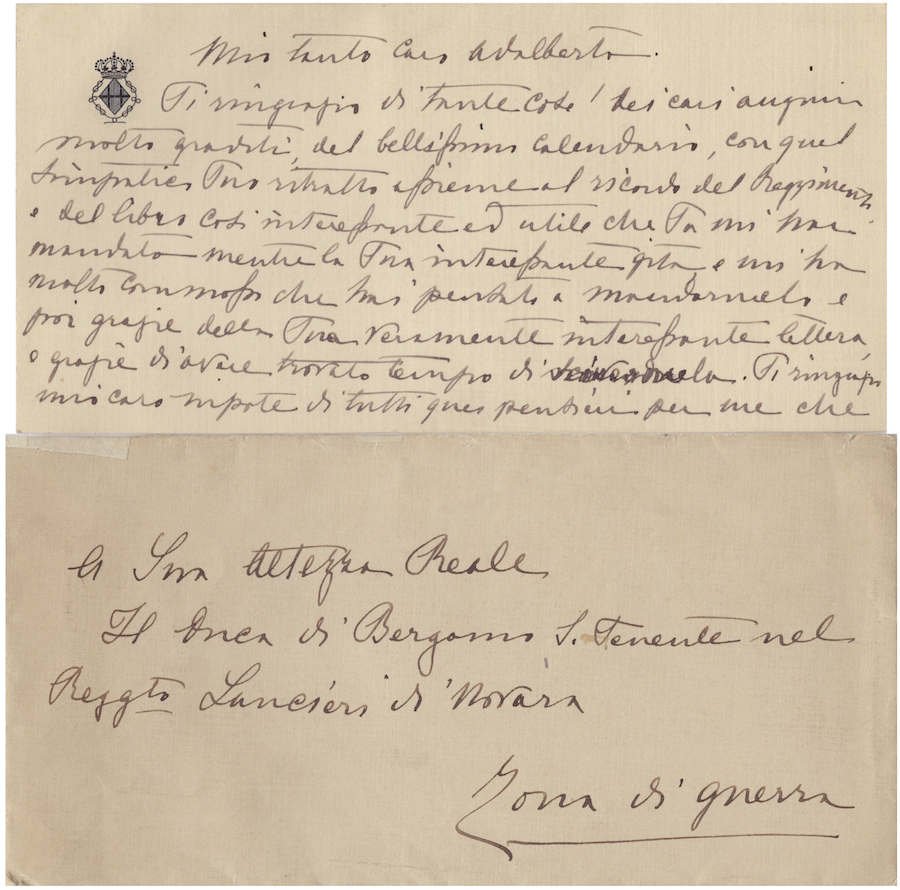 Mio tanto caro Adalberto.
Ti ringrazio di tante cose! dei cari auguri
molto graditi, del bellissimo calendario, con quel
simpatico Tuo ritratto assieme al ricordo del Reggimento
e del libro così interessante ed utile che Tu mi hai
mandato mentre la Tua interessante gita, e mi ha
molto commosso che hai pensato a mandarmelo e
poi grazie della Tua veramente interessante lettera
e grazie d'avere trovato tempo di scrivermela. Ti ringrazio
mio caro nipote di tutti quei pensieri per me che
A Sua Altezza Reale
Il Duca di Bergamo S. Tenente nel
Reggto Lancieri di Novara
Zona di guerra